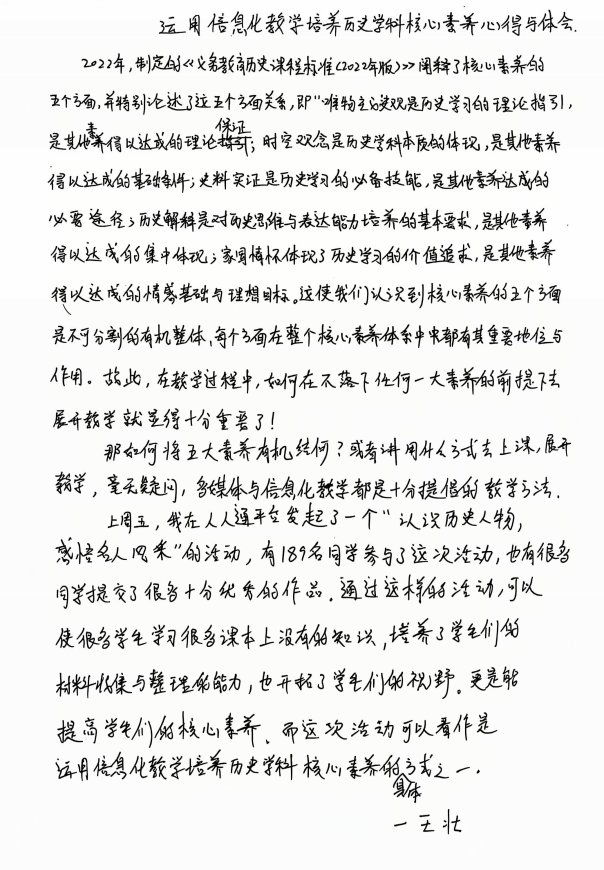 运用信息化教学培养历史学科核心素养心得与体会.
2022年,制定的《义务教育历史课程标准(2022年版)》阐释了核心素养的
五个方面,并特别论述了这五个方面关系,即"唯物主义史观是历史学习的理论指引,
是其他素养得以达成的理论保证;时空观念是历史学科本质的体现,是其他素养
得以达成的基础条件;史料实证是历史学习的必备技能,是其他素养达成的
必要途径;历史解释是对历史思维与表达能力培养的基本要求,是其他素养
得以达成的集中体现;家国情怀体现了历史学习的价值追求,是其他素养
得以达成的情感基础与理想目标。这使我们认识到核心素养的五个方面
是不可分割的有机整体,每个方面在整个核心素养体系中中都有其重要地位与
作用。故此,在教学过程中,如何在不落下任何一大素养的前提下去
展开教学就显得十分重要了!
那如何将五大素养有机结何?或者讲用什么方式去上课,展开
教学,毫无疑问,多媒体与信息化教学都是十分提倡的教学方法.
上周五,我在人人通平台发起了一个"认识历史人物,
感悟名人风采"的活动,有189名同学参与了这次活动,也有很多
同学提交了很多十分优秀的作品.通过这样的活动,可以
使很多学生学习很多课本上没有的知识,培养了学生们的
材料收集与整理的能力,也开拓了学生们的视野.更是能
提高学生们的核心素养、而这次活动可以看作是
运用信息化教学培养历史学科核心素养的具体方式之一.
一王壮